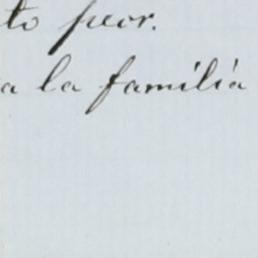 to peor.
a la familia